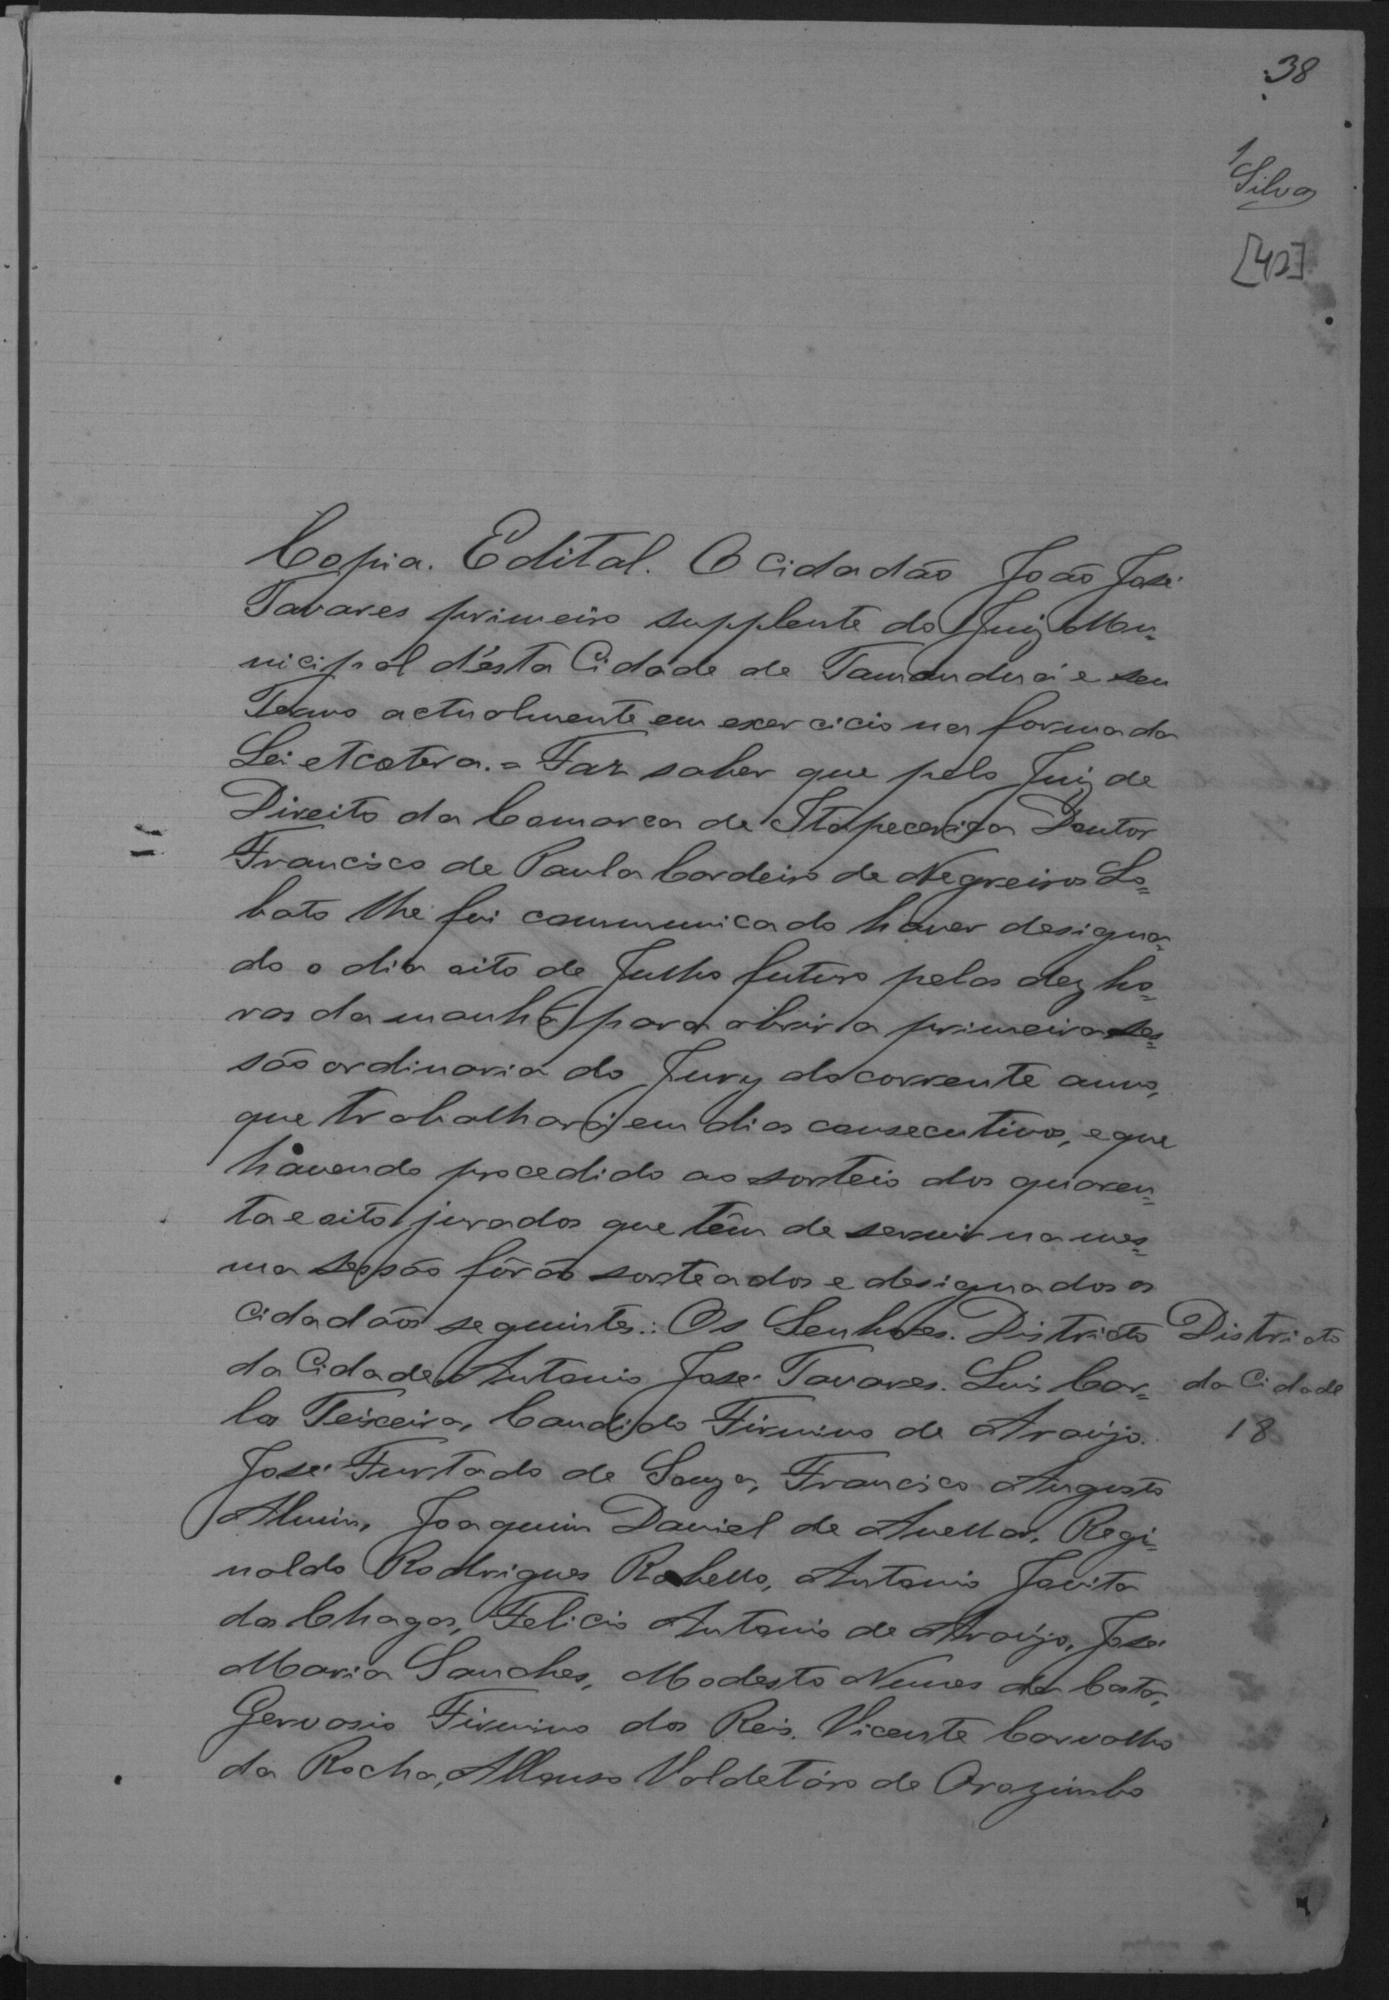 38
1
Silva
[42]
Copia. Edital. O Cidadão João José
Tavares primeiro supplente do Juiz Mu=
nicipal d'ésta Cidade de Tamanduá e seu
Termo actualmente em exercicio na forma da
Lei etcetera. = Faz saber que pelo Juiz de
Direito da Comarca de Itapecerica Doutor
Francisco de Paula Cordeiro de Negreiros Lo=
bato lhe foi communicado haver designa=
do o dia oito de Julho futuro pelas dez ho=
ras da manhã para abrir a primeira ses=
são ordinaria do Jury do corrente anno,
que trabalhará em dias consecutivos, e que
havendo procedido ao sorteio dos quaren=
ta e oito jurados que têm de servir na mes=
ma sessão fôrão sorteados e designados os
Cidadãos seguintes: Os Senhores. Districto
da Cidade Antonio José Tavares. Luis Car=
los Teixeira, Candido Firmino de Araújo.
José Furtado de Souza, Francisco Augusto
Alvim, Joaquim Daniel de Avellar, Regi=
naldo Rodrigues Rabello, Antonio Jovita
das Chagas, Felicio Antonio de Araújo, José
Maria Sanches, Modesto Nunes da Costa,
Gervasio Firmino dos Reis. Vicente Carvalho
da Rocha, Affonso Valdetáro de Orozimbo
Districto
da Cidade
18